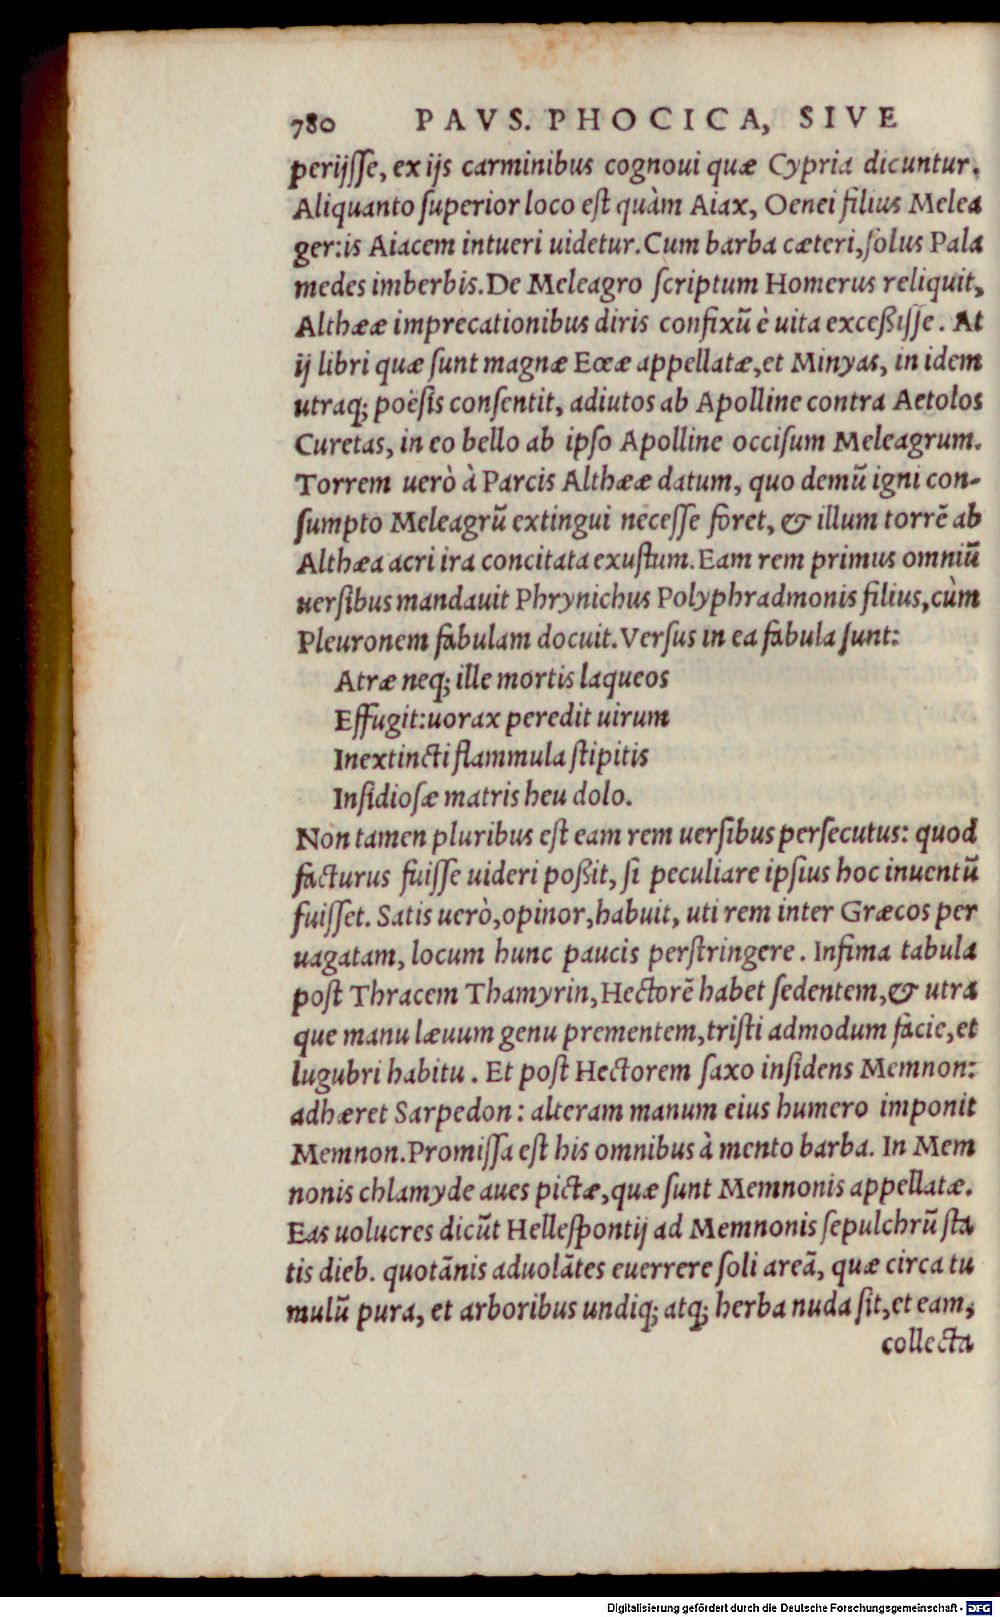 780 PAVS. PHOCICA, SIVE
perijſſe, ex ijs carminibus cognoui quæ Cypria dicuntur.
Aliquanto ſuperior loco eſt quàm Aiax, Oenei filius Melea
ger:is Aiacem intueri uidetur.Cum barba cæteri,ſolus Pala
medes imberbis.De Meleagro ſcriptum Homerus reliquit,
Althææ imprecationibus diris confixū è uita exceßiſſe. At
ij libri quæ ſunt magnæ Eœæ appellatæ,et Minyas, in idem
utraq; poëſis conſentit, adiutos ab Apolline contra Aetolos
Curetas, in eo bello ab ipſo Apolline occiſum Meleagrum.
Torrem uerò à Parcis Althææ datum, quo demū igni con-
ſumpto Meleagrū extingui neceſſe foret, & illum torrē ab
Althæa acri ira concitata exuſtum.Eam rem primus omniū
uerſibus mandauit Phrynichus Polyphradmonis filius,cùm
Pleuronem fabulam docuit.Verſus in ea fabula ſunt:
Atræ neq; ille mortis laqueos
Effugit:uorax peredit uirum
Inextincti flammula ſtipitis
Inſidioſæ matris heu dolo.
Non tamen pluribus eſt eam rem uerſibus perſecutus: quod
facturus fuiſſe uideri poßit, ſi peculiare ipſius hoc inuentū
fuiſſet. Satis uerò,opinor,habuit, uti rem inter Græcos per
uagatam, locum hunc paucis perſtringere. Infima tabula
poſt Thracem Thamyrin,Hectorē habet ſedentem,& utra
que manu læuum genu prementem,triſti admodum facie,et
lugubri habitu. Et poſt Hectorem ſaxo inſidens Memnon:
adhæret Sarpedon: alteram manum eius humero imponit
Memnon.Promiſſa eſt his omnibus à mento barba. In Mem
nonis chlamyde aues pictæ,quæ ſunt Memnonis appellatæ.
Eas uolucres dicūt Helleſpontij ad Memnonis ſepulchrū ſta
tis dieb. quotānis aduolātes euerrere ſoli areā, quæ circa tu
mulū pura, et arboribus undiq; atq; herba nuda ſit,et eam,
collecta
Digitalisierung gefördert durch die Deutsche Forschungsgemeinschaft - DFG